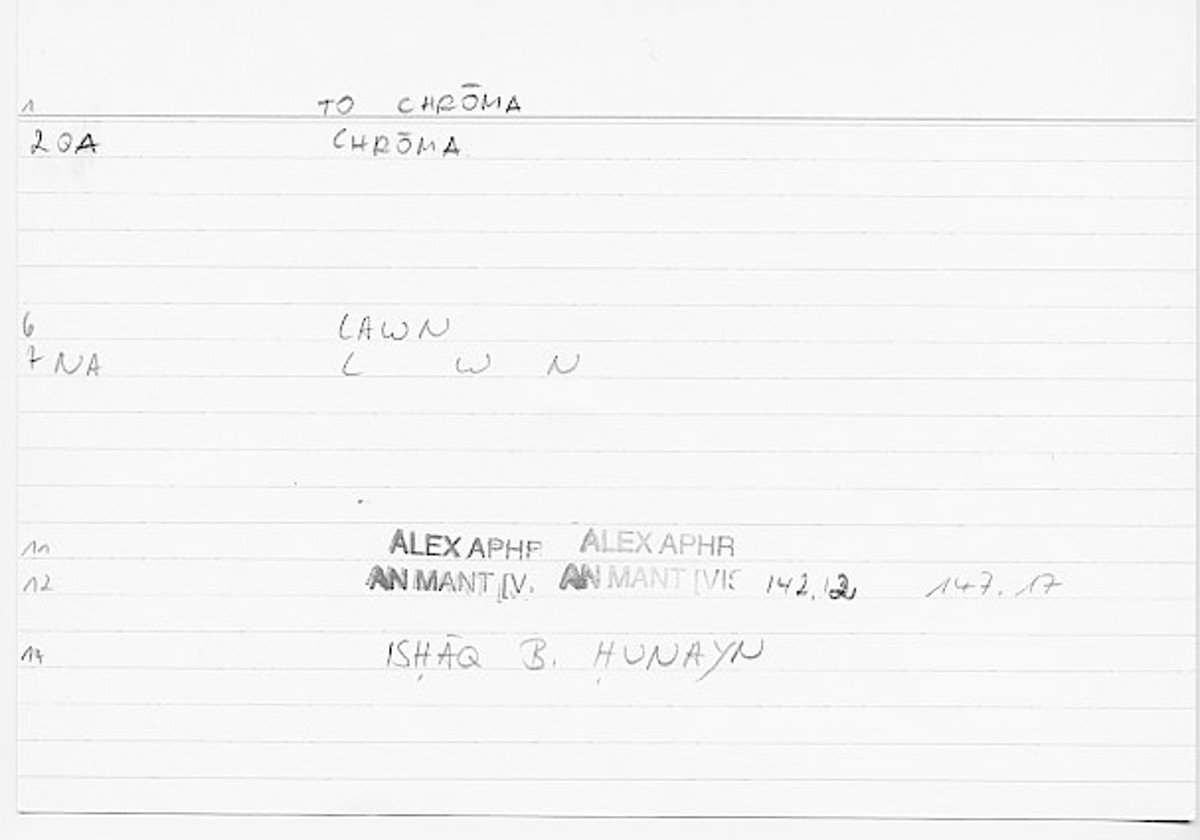 1 TO CHRŌMA
2 QA CHRŌMA
6 LAWN
7 NA L W N
11 ALEX APHR ALEX APHR
12 AN MANT [V. AN MANT [VIS 142.12 147.17
14 ISḤĀQ B. ḤUNAYN